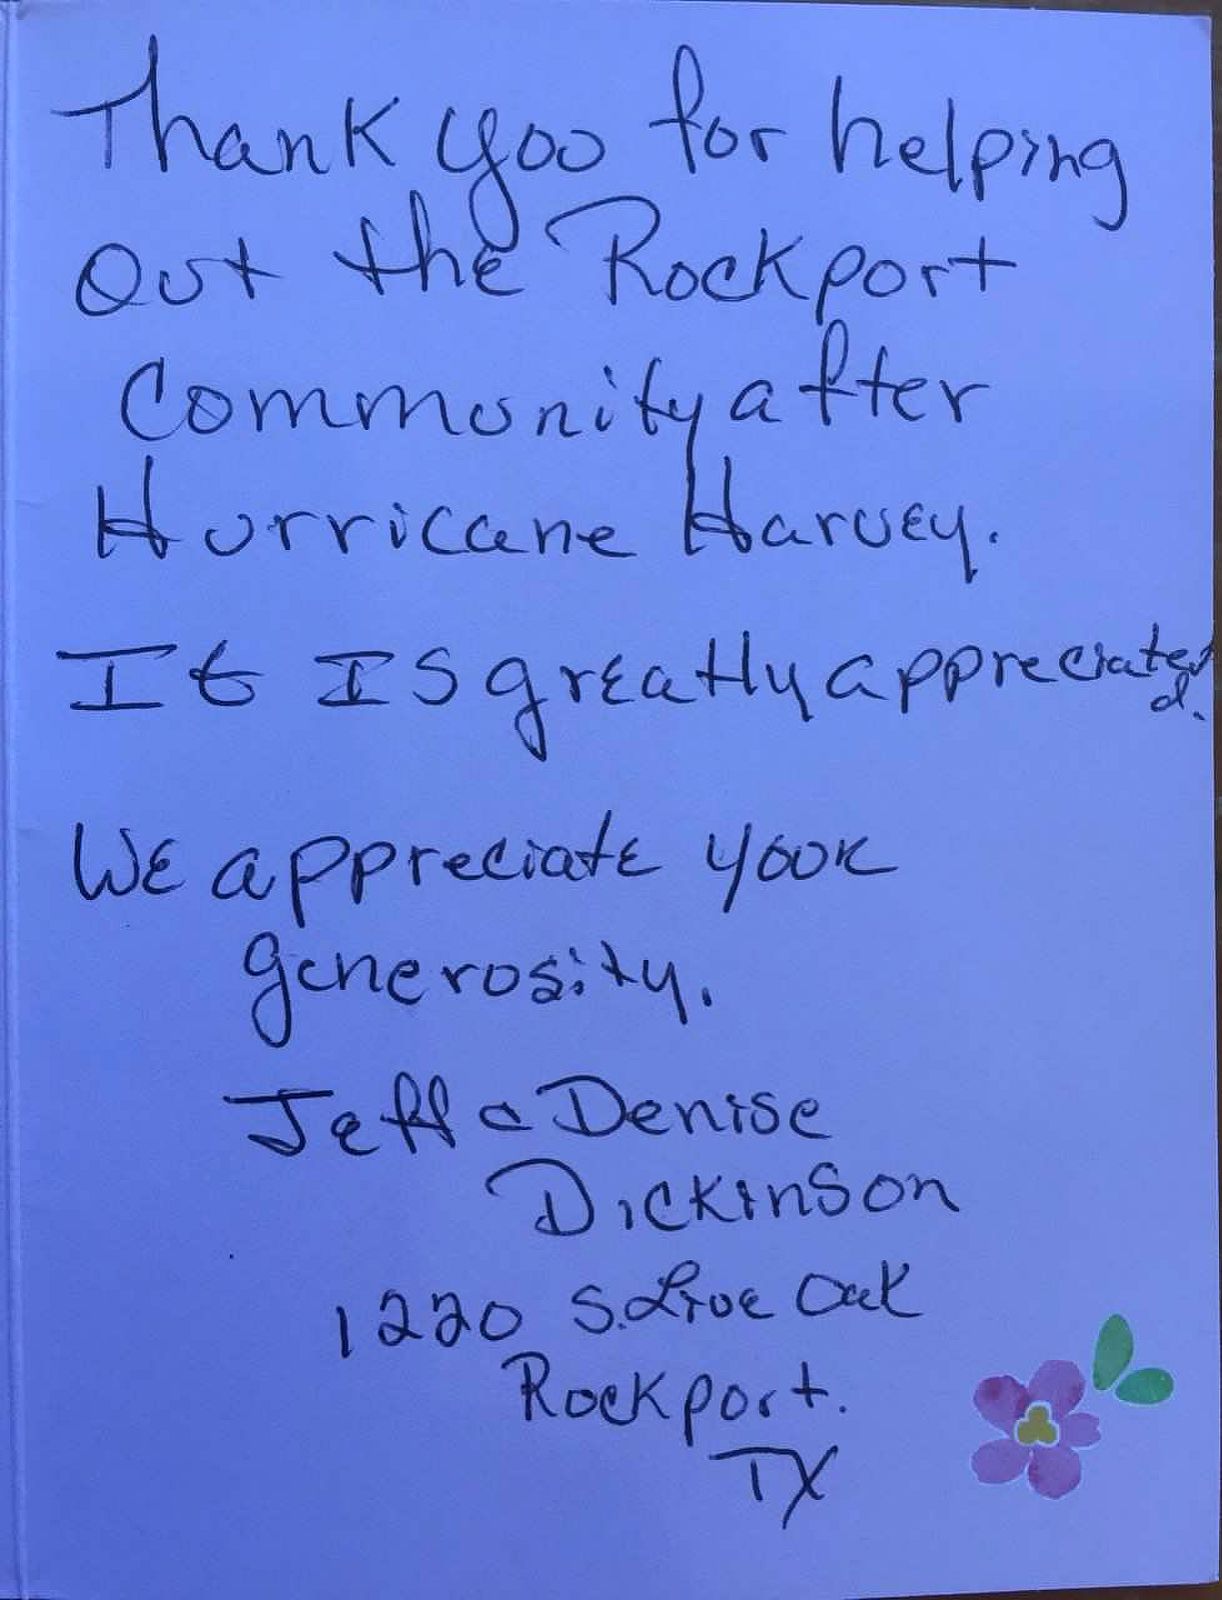 Thank you for helping
out the Rockport
Community after
Hurricane Harvey.
It Is greatly appreciated
d.
We appreciate your
generosity.
Jeff & Denise
Dickinson
1220 S. Live Oak
Rockport.
TX